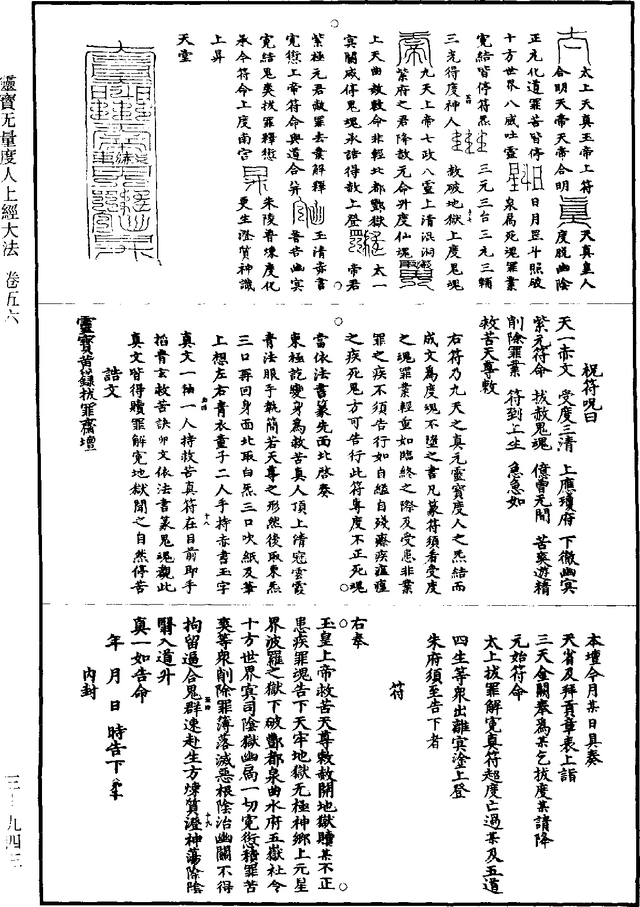 太上天真玉帝上符 天真皇人
合明天帝天帝合明 度脫幽陰
正炁化道罪苦皆停 日月罡斗照破
十方世界八威吐靈 泉扃死魂罪業
冤結皆停符炁 三元三台三元三輔
三光得度神人 赦破地獄上度鬼魂
九天上帝七政八靈上清混洞
紫府之君降赦元命升度仙魂
上天曲赦敕命非輕北都酆獄 太一
冥關咸停鬼魂承誥得赦上登 帝君
紫極元君赦罪去業解釋 玉清赤書
冤愆上帝符命與道合并 普告幽冥
冤結鬼爽拔罪釋愆 朱陵眷煉度化
承今符命上度南宮 更生澄質神識
上昇
天堂
祝符呪曰
天一赤文 受度三清 上應瓊府 下徹幽冥
紫元符命 拔赦鬼魂 億曹无間 苦爽遊精
削除罪業 符到上生 急急如
救苦天尊敕
右符乃九天之真元靈寶度人之炁結而
成文為度魂不墮之書凡篆符須看受度
之魂罪業輕重如臨終之際及受患非業
罪之疾不須告行如自縊自殘療疾瘟㾮
之疾死鬼方可告行此符專度不正死魂
當依法書篆先面北啓奏
東極訖變身為救苦真人頂上清冠雲霞
青法服手執簡若天尊之形然後取東炁
三口再回身面北取白炁三口吹紙及筆
上想左右青衣童子二人手持赤書玉字
真文一軸一人持救苦真符在目前即手
掐青玄救苦訣卯文依法書篆鬼魂覩此
真文皆得贖罪解冤地獄聞之自然停苦
誥文
靈寶黃籙拔罪齋壇
本壇今月某日具奏
天省及拜貢章表上詣
三天金闕奉為某乞拔度某請降
元始符命
太上拔罪解冤真符超度亡過某及五道
四生等眾出離冥塗上登
朱府須至告下者
符
右奉
玉皇上帝救苦天尊敕赦開地獄贖某不正
患疾罪魂告下天牢地獄无極神鄉上元星
界波羅之獄下破酆都泉曲水府五嶽社令
十方世界冥司陰獄幽扃一切冤愆積罪苦
爽等眾削除罪簿落滅惡根陰治幽關不得
拘留逼合鬼群速赴生方煉質澄神蕩除陰
翳入道升
真一如告命
年 月 日 時告下
內封
靈寶无量度人上經大法 卷五六
三-九四三